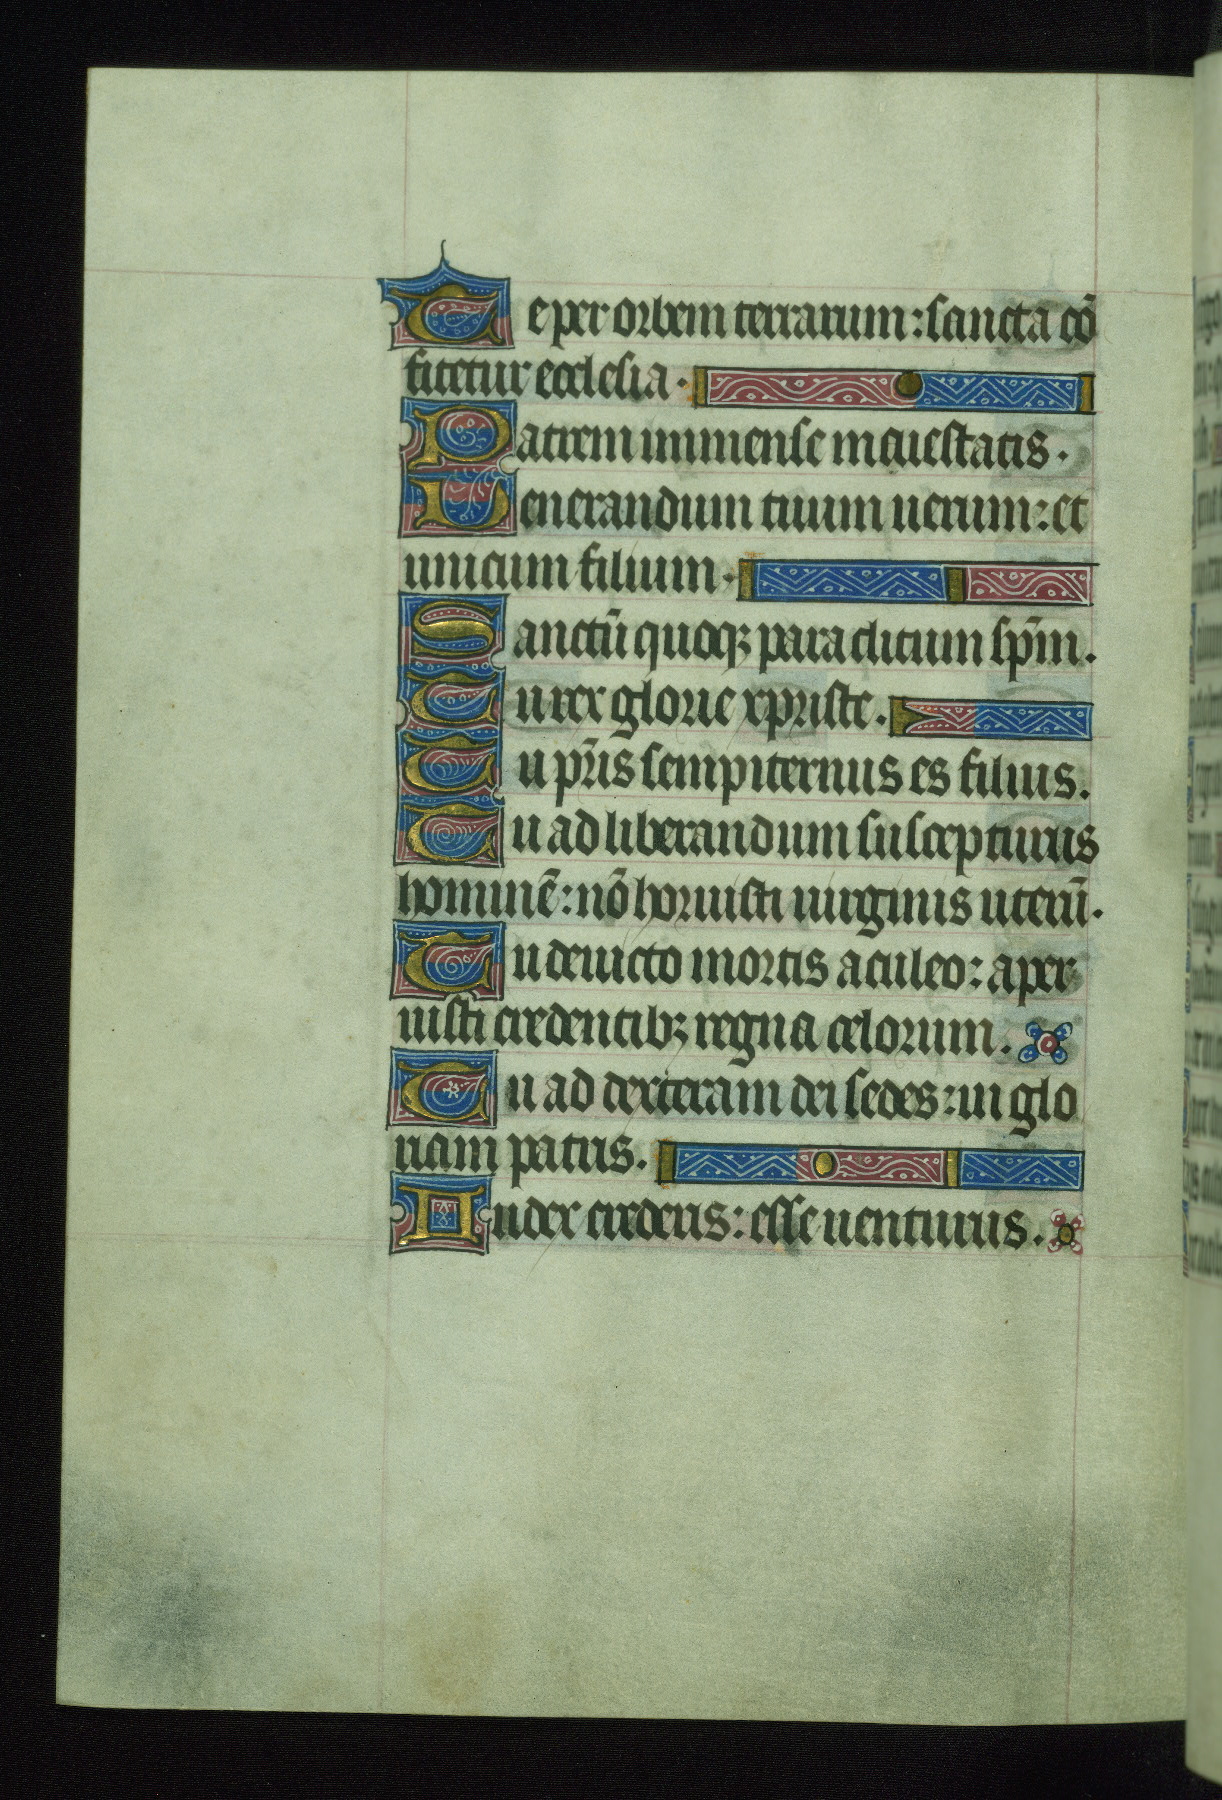 Te per orbem terrarum: sancta cō
fitetur ecclesia.
Patrem immense maiestatis.
Uenerandum tuum uerum: et
unicum filium.
Sanctū quoqꝫ paraclitum sp̄m.
Tu rex glorie xpriste.
Tu pr̄is sempiternus es filius.
Tu ad liberandum suscepturus
hominē: nō horuisti uirginis uterū.
Tu deuicto mortis aculeo: aper
uisti credentibꝫ regna celorum.
Tu ad dexteram dei sedes: in glo
riam patris.
Iudex crederis: esse uenturus.